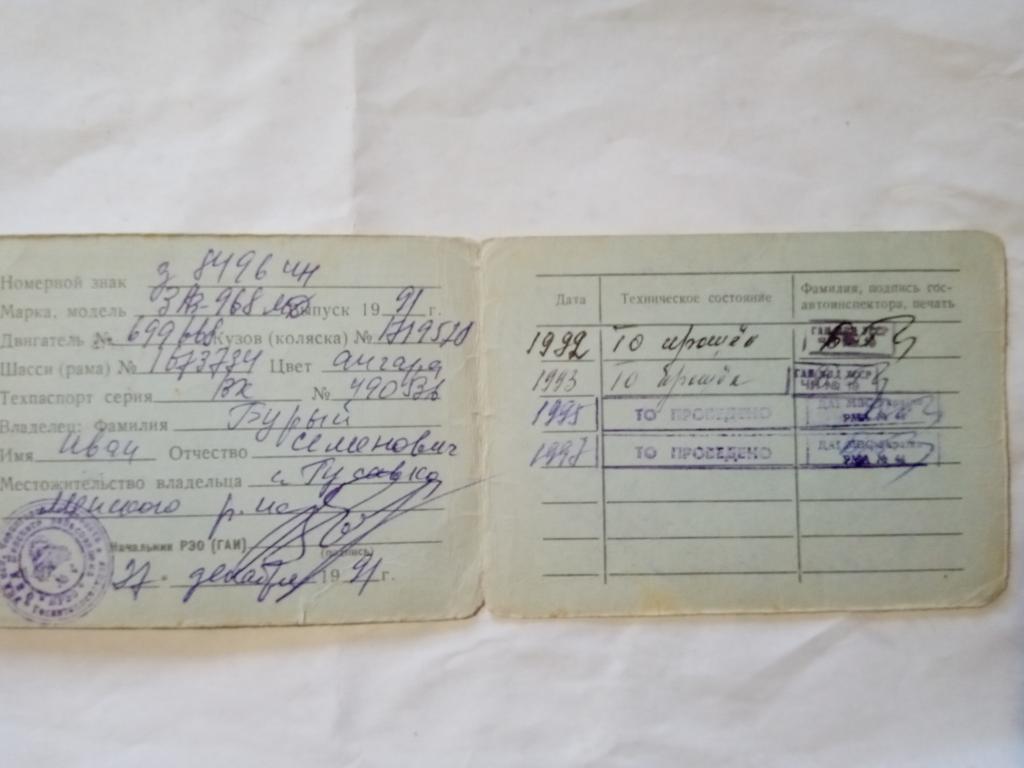 Номерной знак д 8496 чн
Марка, модель ЗАЗ-968 М выпуск 1991 г.
Двигатель № Кузов (коляска) №
Шасси (рама) № 1673734 Цвет ангара
Техпаспорт серия ВХ №
Владелец: Фамилия Бурый
Имя Иван Отчество Семенович
Местожительство владельца с.
Менского р.
Начальник РЭО (ГАИ)
(подпись)
27 декабря 1991 г.
Дата Техническое состояние Фамилия, подпись гос-
автоинспектора, печать
1992 ТО прошёл
1993 ТО прошёл
1995 ТО ПРОВЕДЕНО
1997 ТО ПРОВЕДЕНО